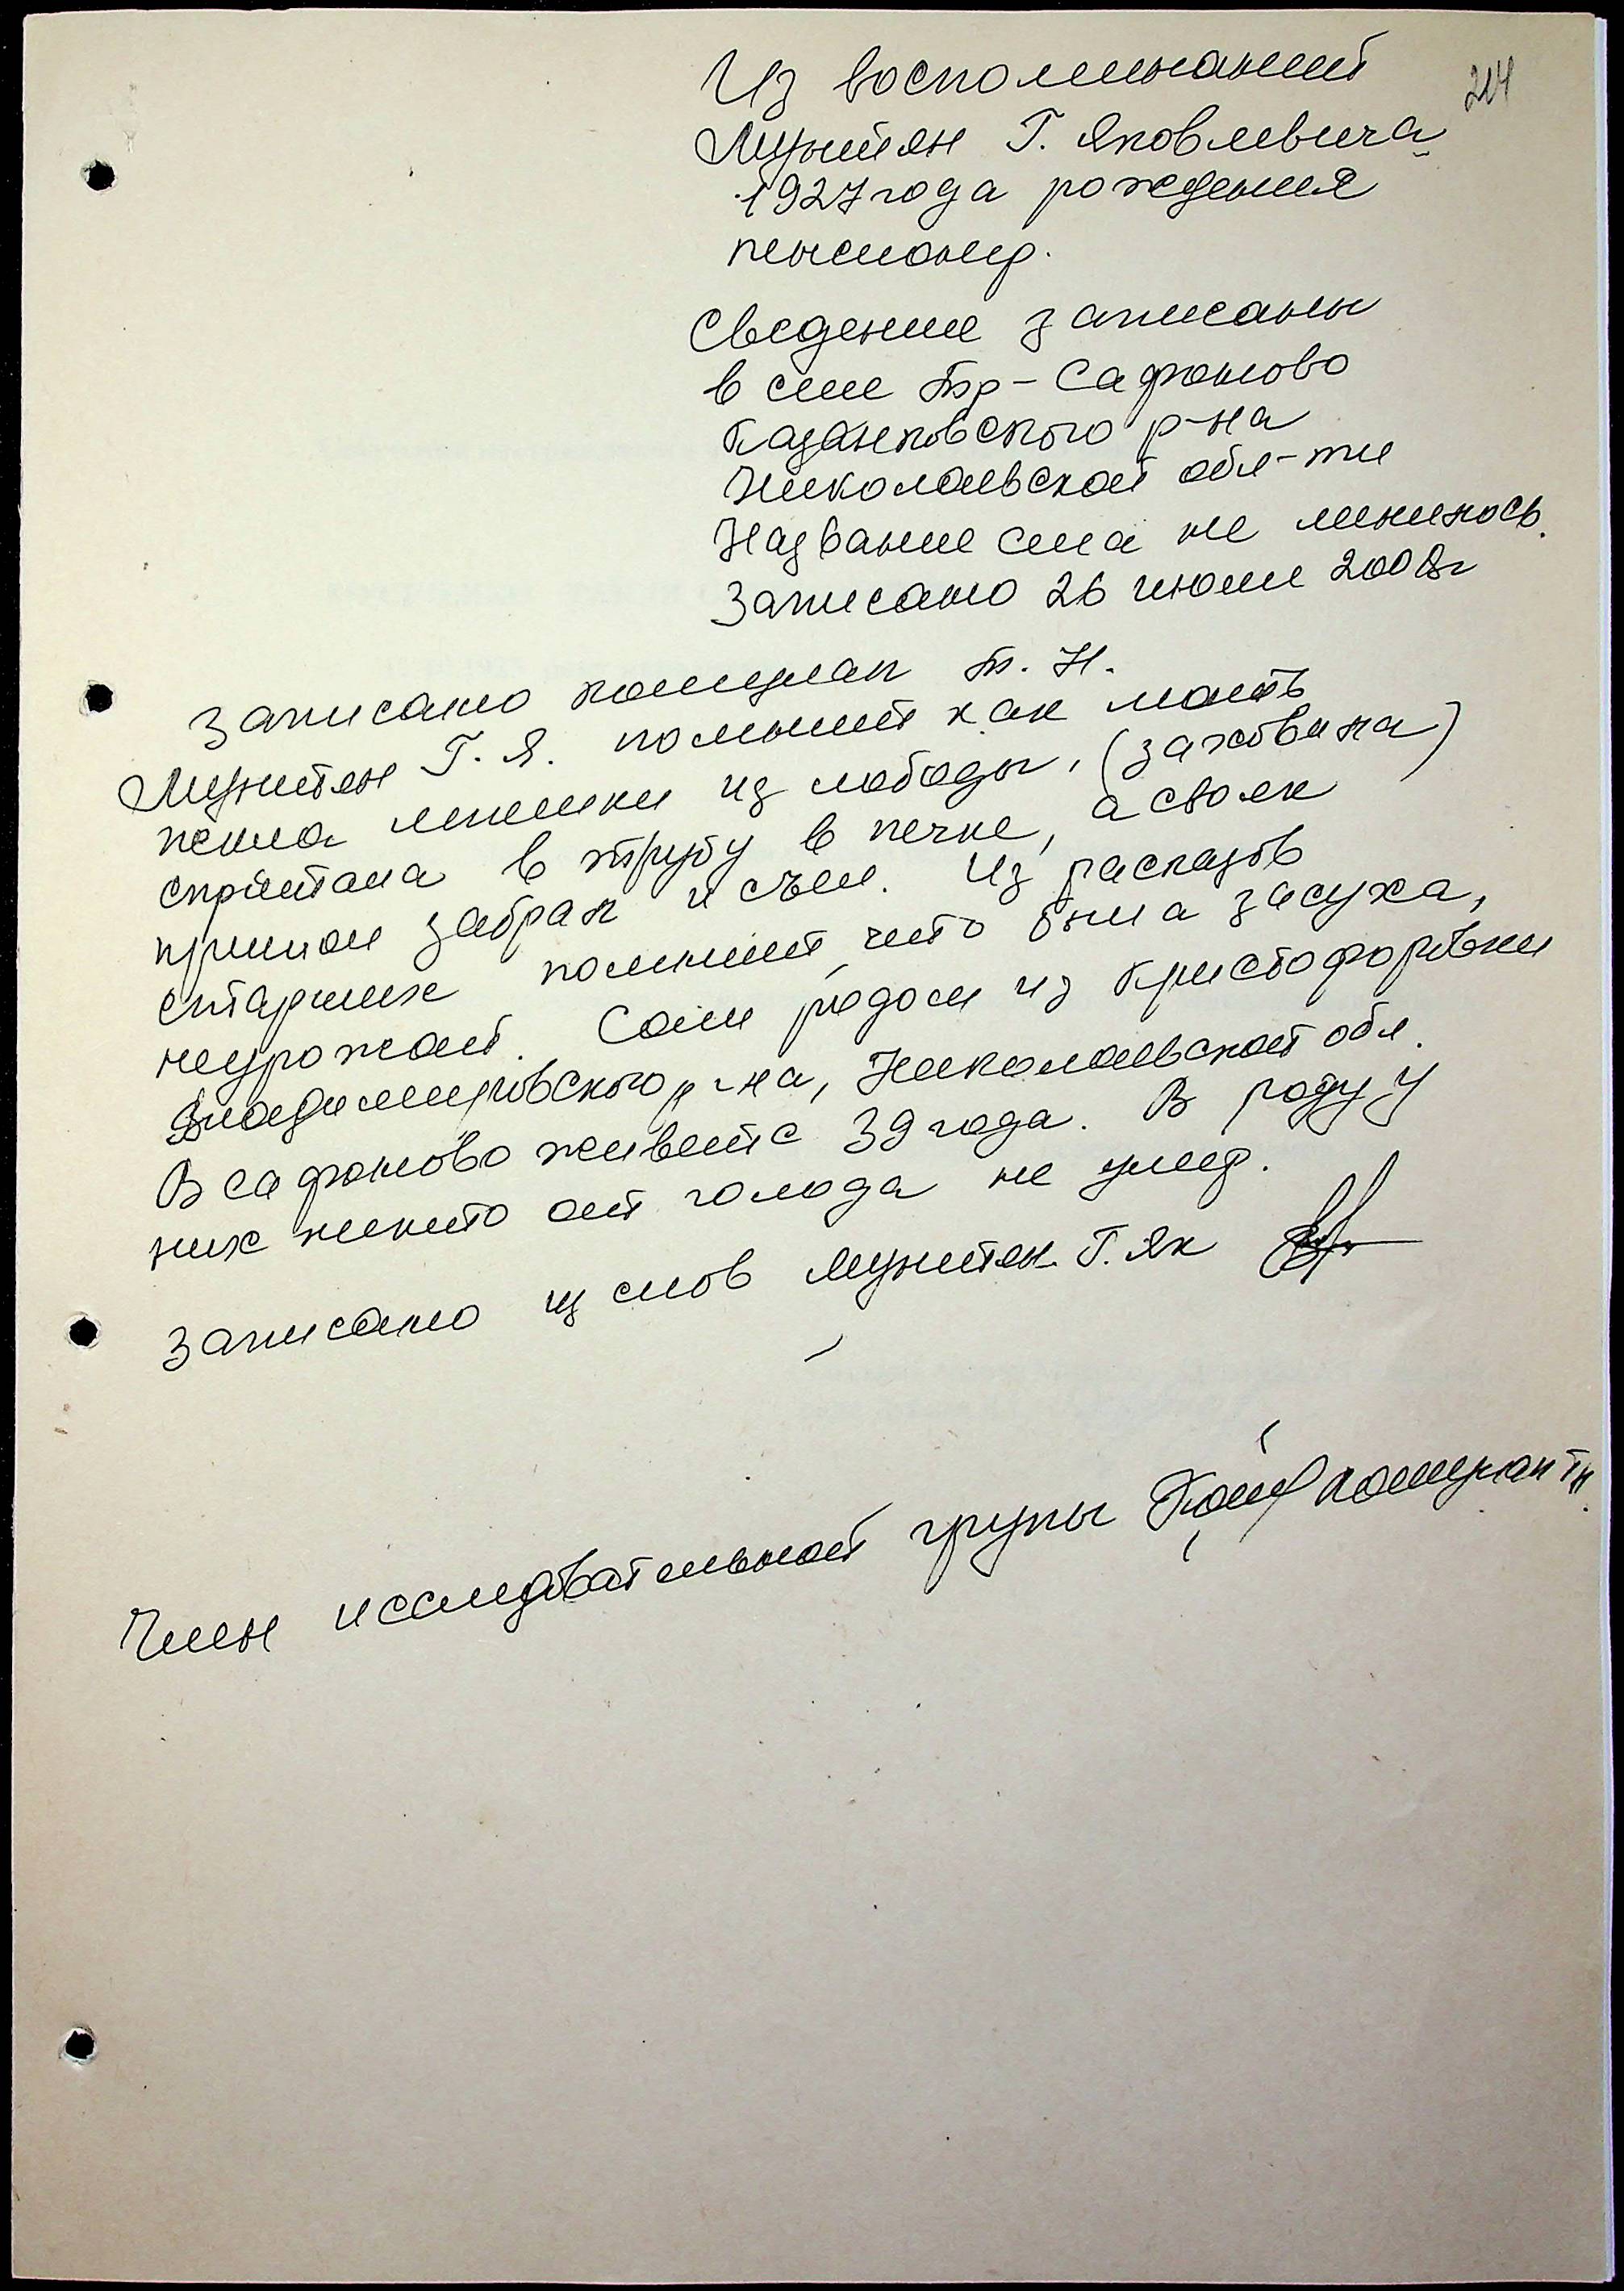 214
Из воспоминаний
Мунтян Г. Яковлевича
1927 года рождения
пенсионер.
Сведение записаны
в селе Тр-Сафоново
Казанковского р-на
Николаевской обл-ти
Название села не менялось.
Записано 26 июня 2008г
Записано Кошулап Т. Н.
Мунтян Г. Я. помнит как мать
пекла лепешки из лободы,
спрятала в трубу в печке, (заховала)
а свояк
пришол забрал и съел. Из расказов
старших помнит, что была засуха,
неурожай. Сам родом из Кристофоровки
Владимировского р-на, Николаевской обл.
В Сафоново живет с 39 года. В роду у
них никто от голода не умер.
Записано из слов Мунтян Г. Як
Член исследовательной групы Кошулап Тн.